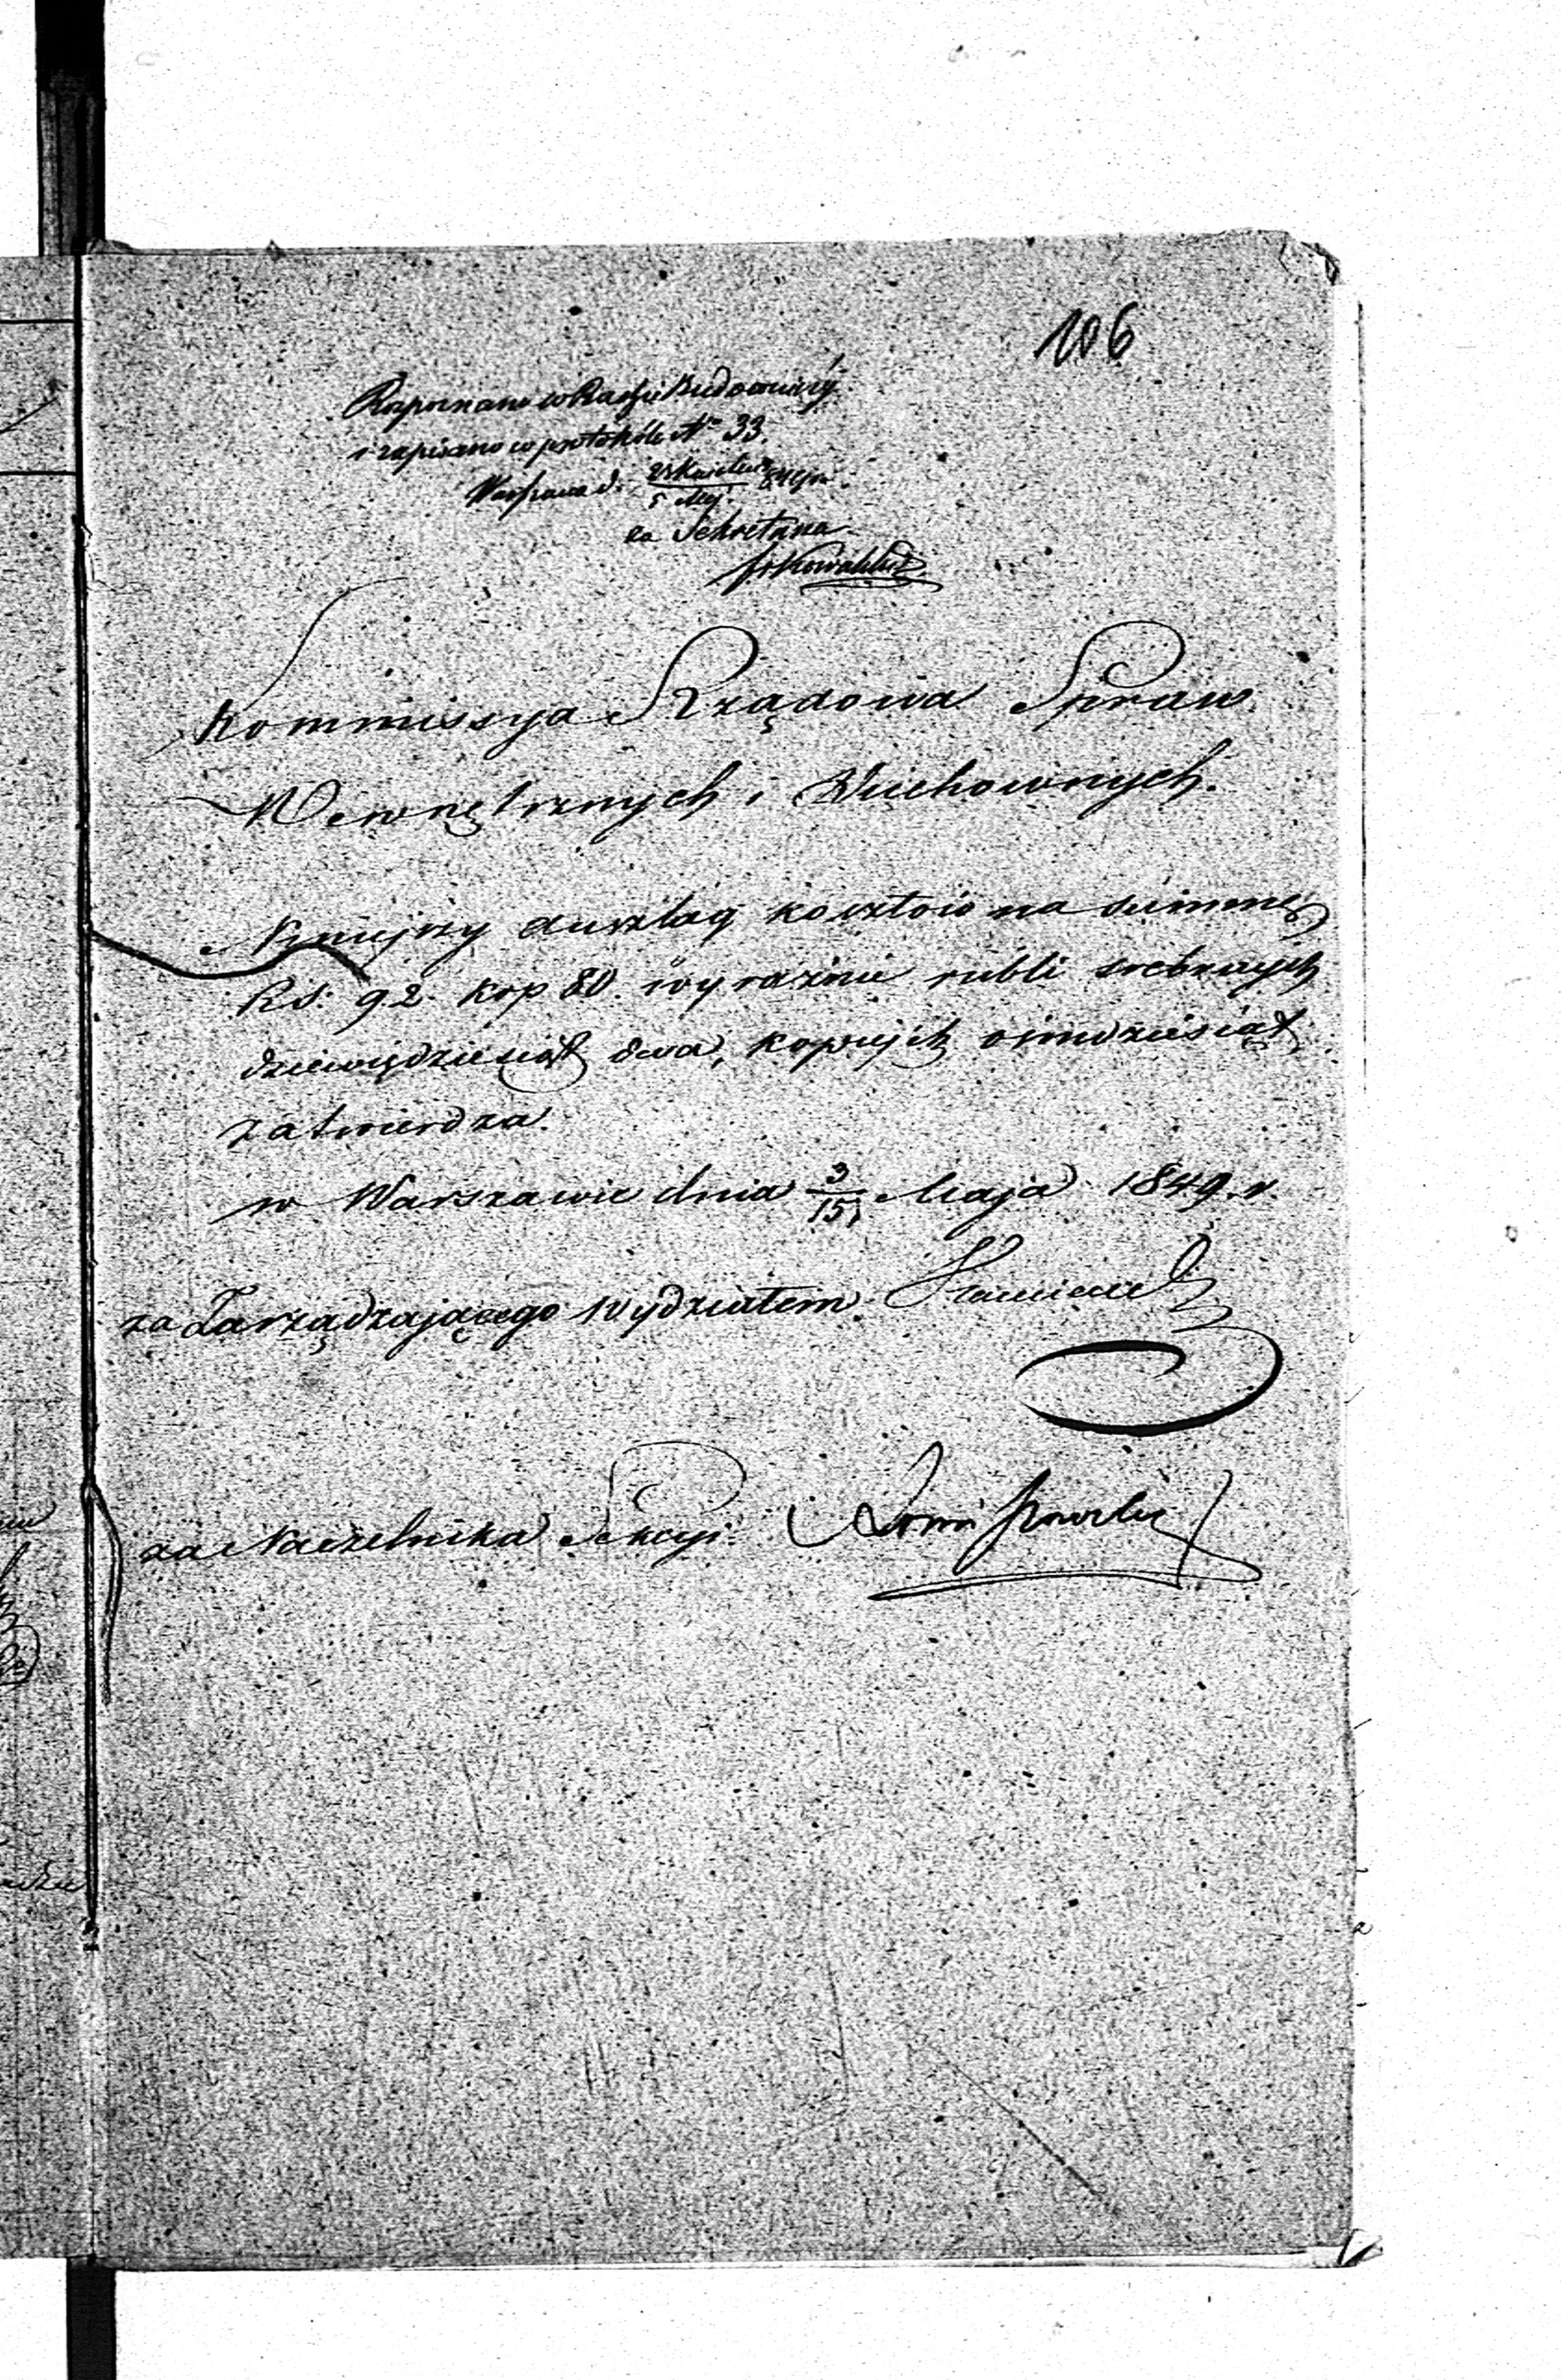 106
Rozpoznano w Radzie Budowniczej
i zapisano w protokóle No 33.
Warszawa d. 23 Kwietnia/5 Maj. 849 r.
za Sekretarza
Kommissya Rządowa Spraw
Wewnętrznych i Duchownych.
Niniejszy anszlag kosztów na summę
Rs. 92. kop 80. wyraźnie rubli srebrnych
dziewięćdziesiąt dwa, kopiejek ośmdziesiąt
zatwierdza.
w Warszawie dnia 3/15 Maja 1849. r.
za Zarządzającego Wydziałem
za Naczelnika Sekcyi